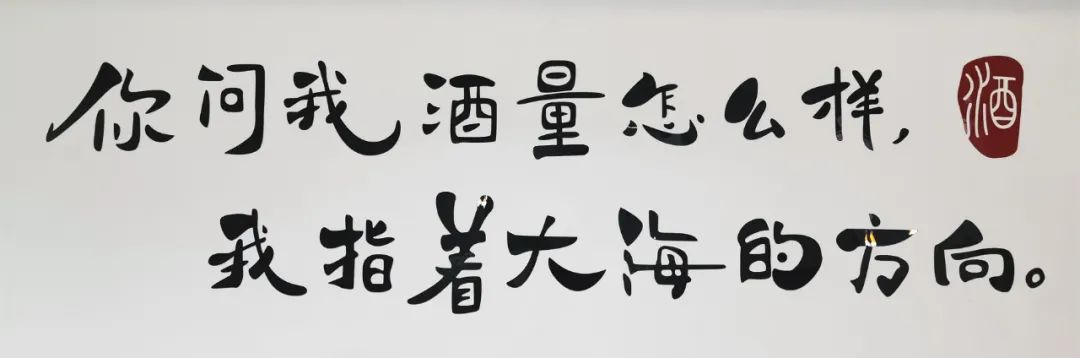 你问我酒量怎么样,
酒
我指着大海的方向。